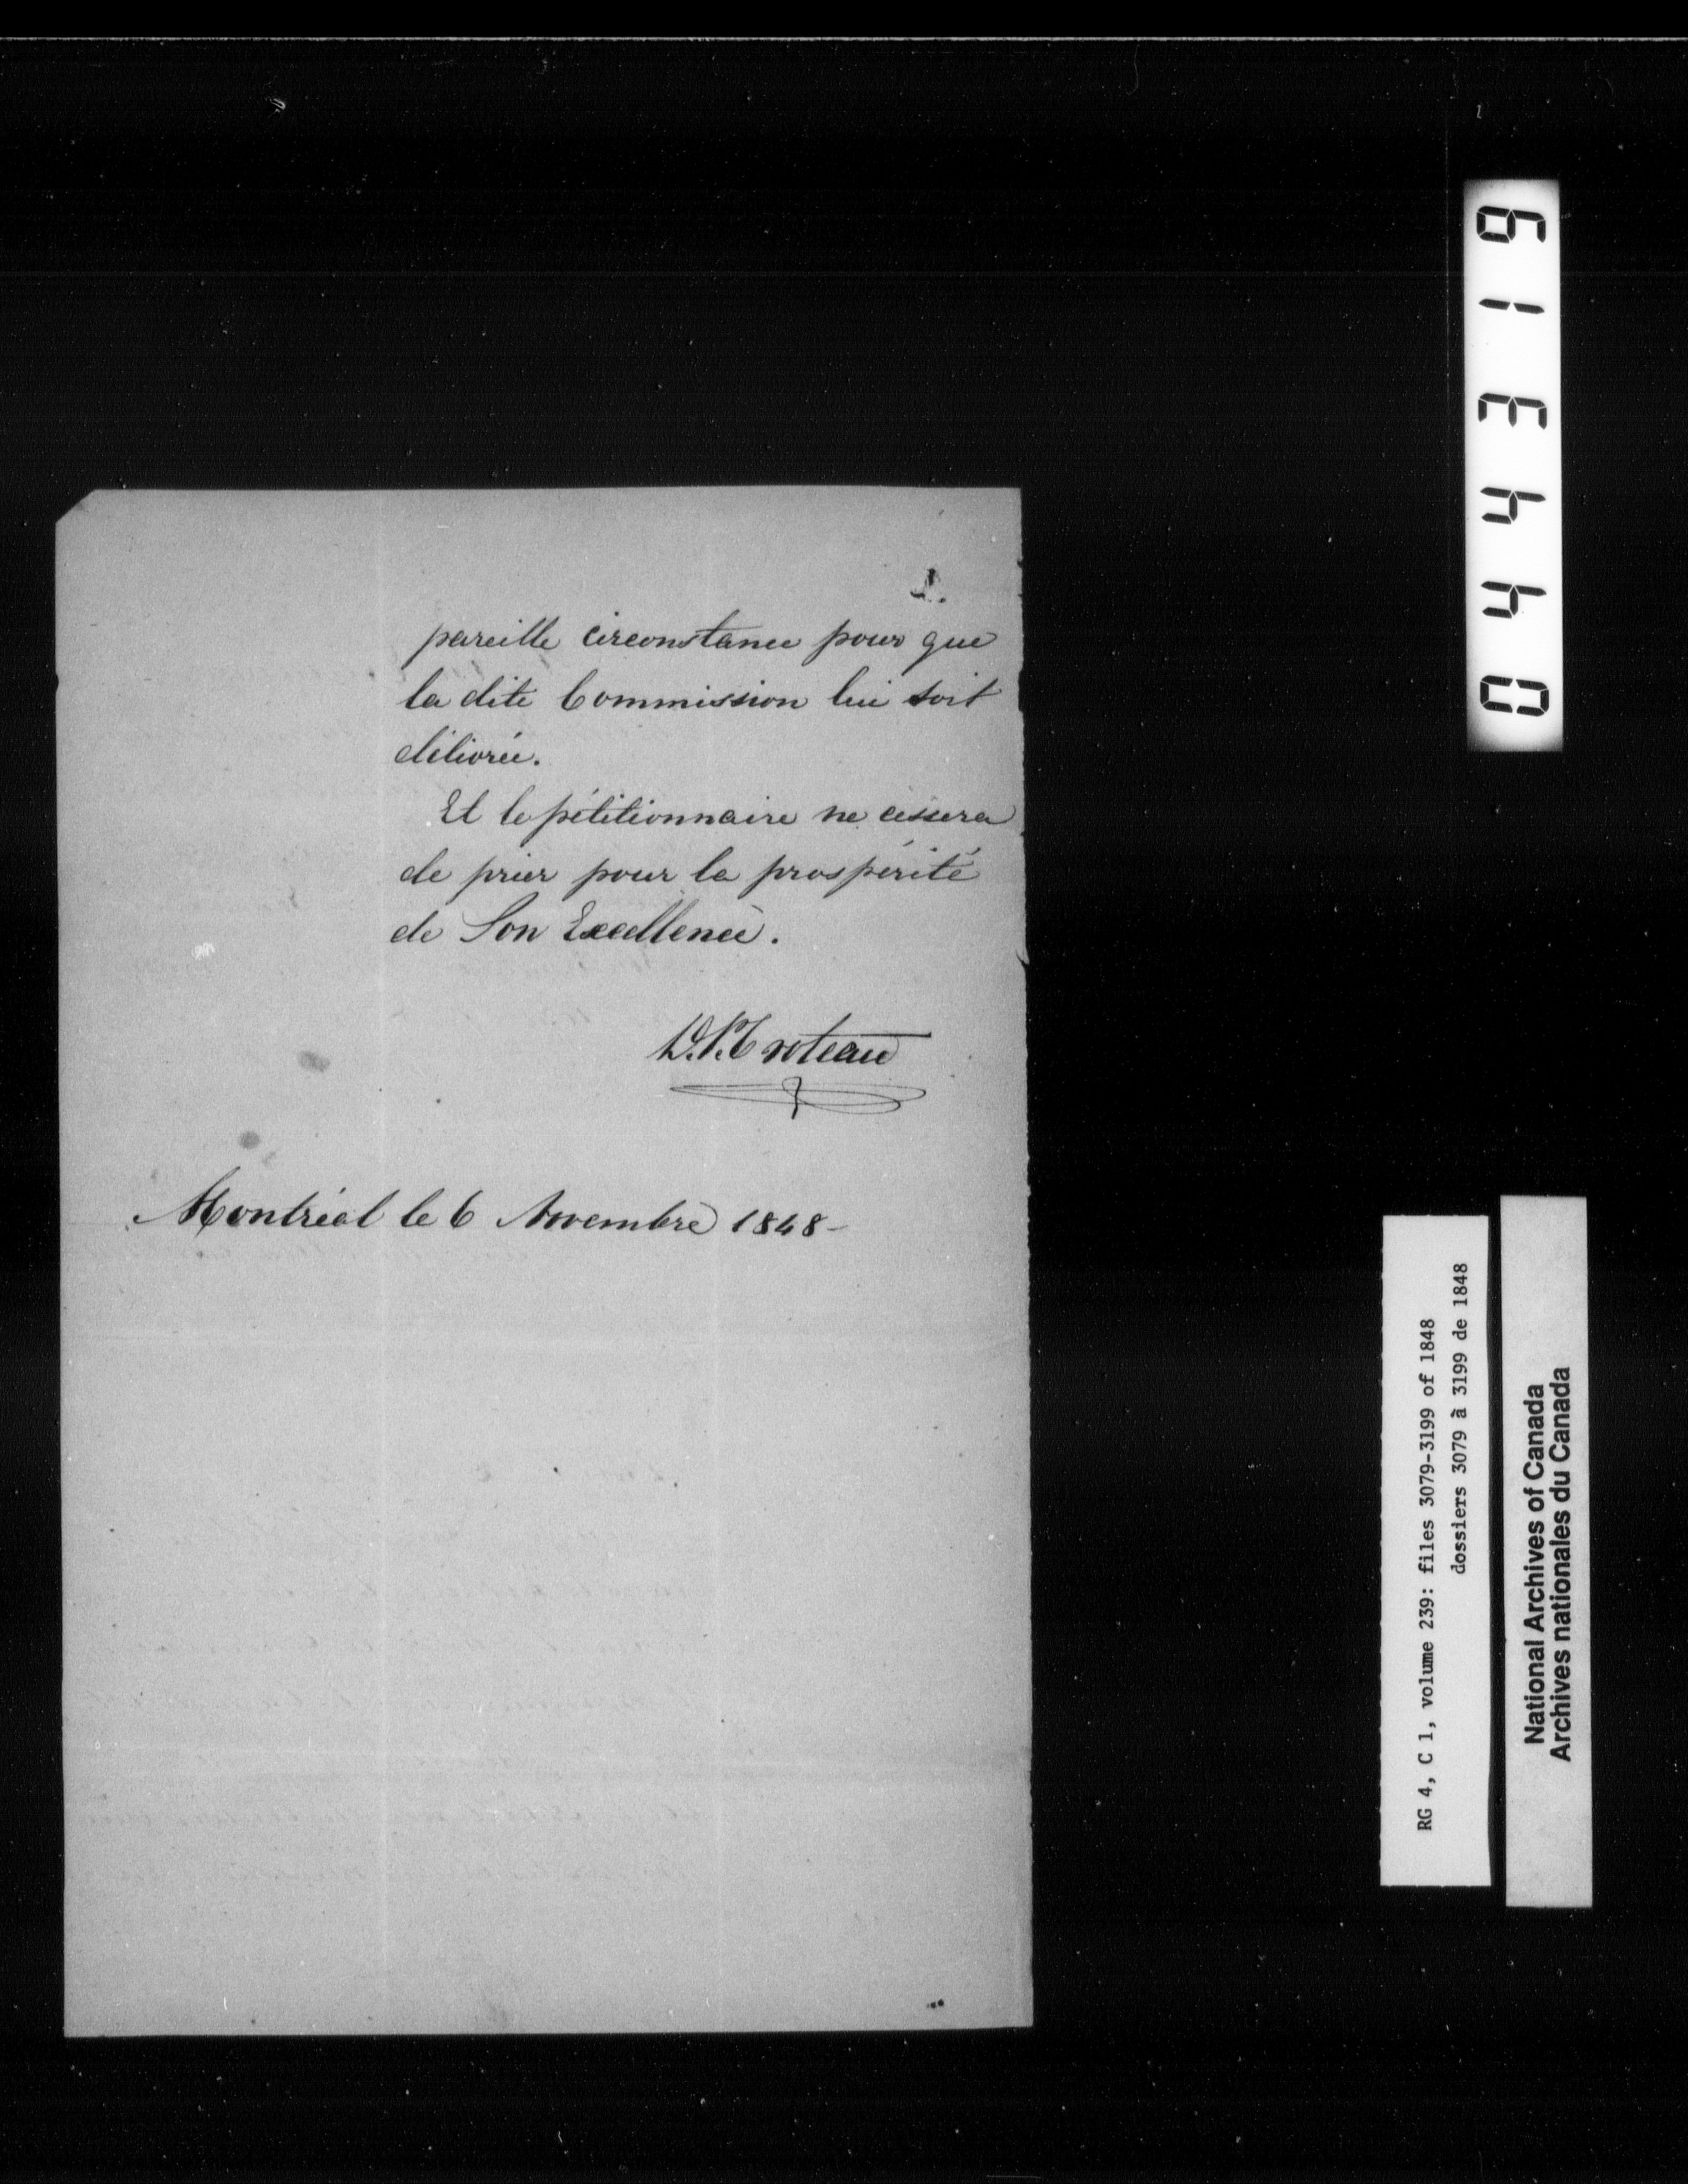 2.
pareille circonstance pour que
la dite Commission lui soit
délivrée.
Et le pétitionnaire ne cessera
de prier pour la prospérité
de Son Excellence.
Montréal le 6 Novembre 1848-
044319
RG 4, C 1, volume 239: files 3079-3199 of 1848
dossiers 3079 à 3199 de 1848
National Archives of Canada
Archives nationales du Canada